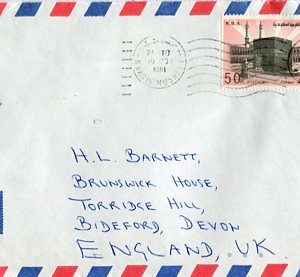 K.S.A.
50
1981
KHAMIS MUSHAIT
H.L. BARNETT,
BRUNSWICK HOUSE,
TORRIDGE HILL,
BIDEFORD, DEVON
ENGLAND, UK.